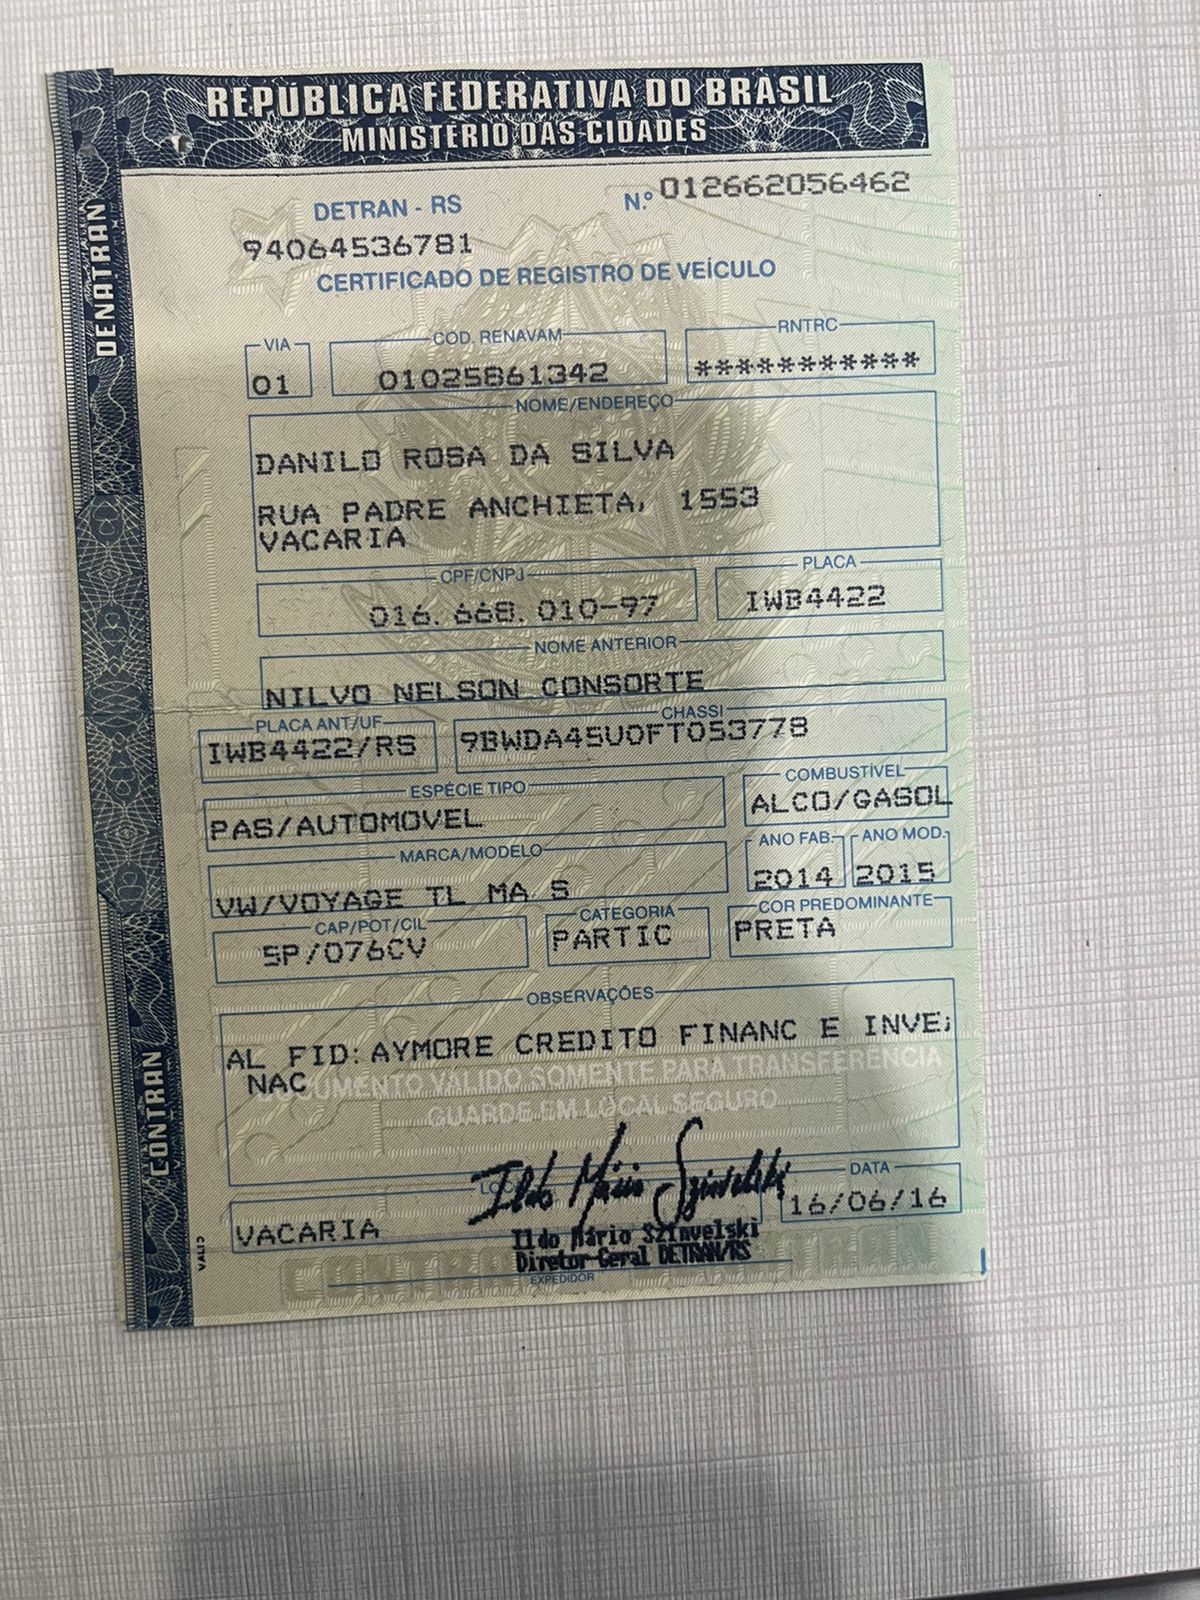 REPÚBLICA FEDERATIVA DO BRASIL
MINISTÉRIO DAS CIDADES
DENATRAN
CONTRAN
DETRAN - RS
N.º 012662056462
94064536781
CERTIFICADO DE REGISTRO DE VEÍCULO
VIA
01
CÓD. RENAVAM
01025861342
RNTRC
***********
NOME/ENDEREÇO
DANILO ROSA DA SILVA
RUA PADRE ANCHIETA, 1553
VACARIA
CPF/CNPJ
016.668.010-97
PLACA
IWB4422
NOME ANTERIOR
NILVO NELSON CONSORTE
PLACA ANT/UF
IWB4422/RS
CHASSI
9BWDA45U0FT053778
ESPÉCIE TIPO
PAS/AUTOMOVEL
COMBUSTÍVEL
ALCO/GASOL
MARCA/MODELO
VW/VOYAGE TL MA S
ANO FAB.
2014
ANO MOD.
2015
CAP/POT/CIL
5P/076CV
CATEGORIA
PARTIC
COR PREDOMINANTE
PRETA
OBSERVAÇÕES
AL FID: AYMORE CREDITO FINANC E INVE;
NAC
DOCUMENTO VÁLIDO SOMENTE PARA TRANSFERÊNCIA
GUARDE EM LOCAL SEGURO
VACARIA
DATA
16/06/16
Ildo Mário Szinvelski
Ildo Mário Szinvelski
Diretor Geral DETRAN/RS
EXPEDIDOR